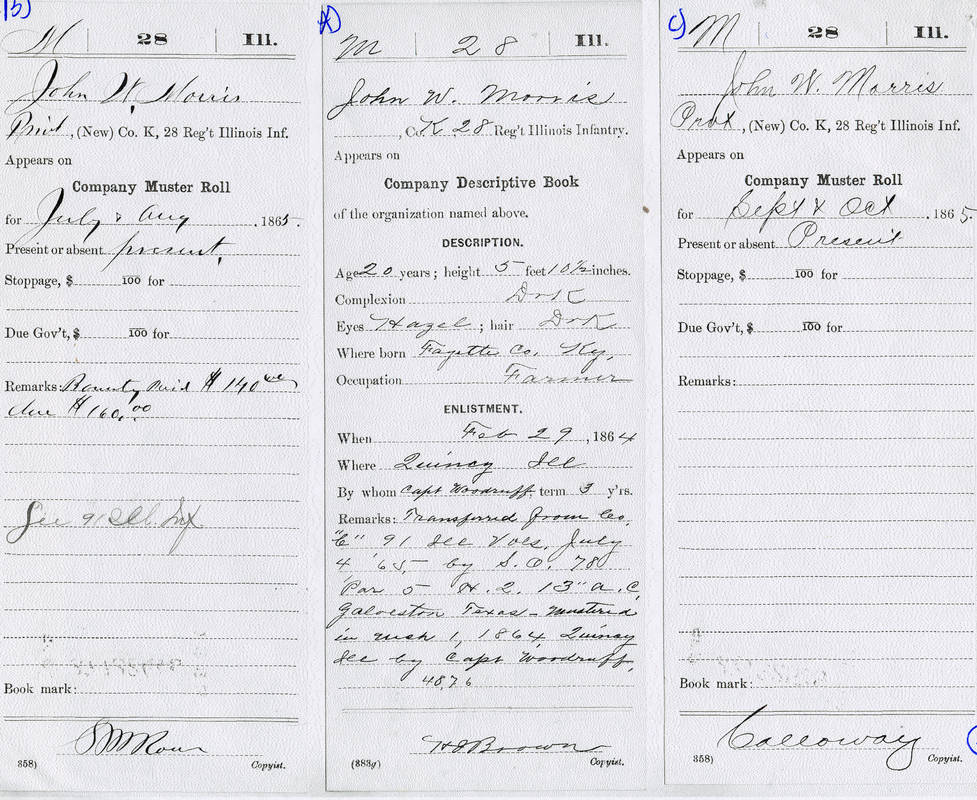 B)
M | 28 | Ill.
John W. Morris
Privt, (New) Co. K, 28 Reg't Illinois Inf.
Appears on
Company Muster Roll
for July & Aug, 1865.
Present or absent present.
Stoppage, $ 100 for
Due Gov't, $ 100 for
Remarks: Bounty Paid $140
due $160.00
See 91 Ill. Inf
Book mark:
358) Copyist.
A)
M 28 Ill.
John W. Morris
, Co. K, 28 Reg't Illinois Infantry.
Appears on
Company Descriptive Book
of the organization named above.
DESCRIPTION.
Age 20 years; height 5 feet 10½ inches.
Complexion Drk
Eyes Hazel; hair Drk
Where born Fayette Co. Ky,
Occupation Farmer
ENLISTMENT.
When Feb 29, 1864
Where Quincy Ill
By whom Capt Woodruff, term 3 y'rs.
Remarks: Transferred from Co,
"C" 91 Ill Vols, July
4 '65, by S.O. 78
Par 5 H.2. 13" A.C,
Galveston Texas - Mustered
in 1, 1864 Quincy
Ill by Capt Woodruff,
48,76
H J Brown
(383g) Copyist.
C)
M | 28 | Ill.
John W. Morris
Pvt, (New) Co. K, 28 Reg't Illinois Inf.
Appears on
Company Muster Roll
for Sept & Oct, 1865.
Present or absent Present
Stoppage, $ 100 for
Due Gov't, $ 100 for
Remarks:
Book mark:
Calloway
358) Copyist.